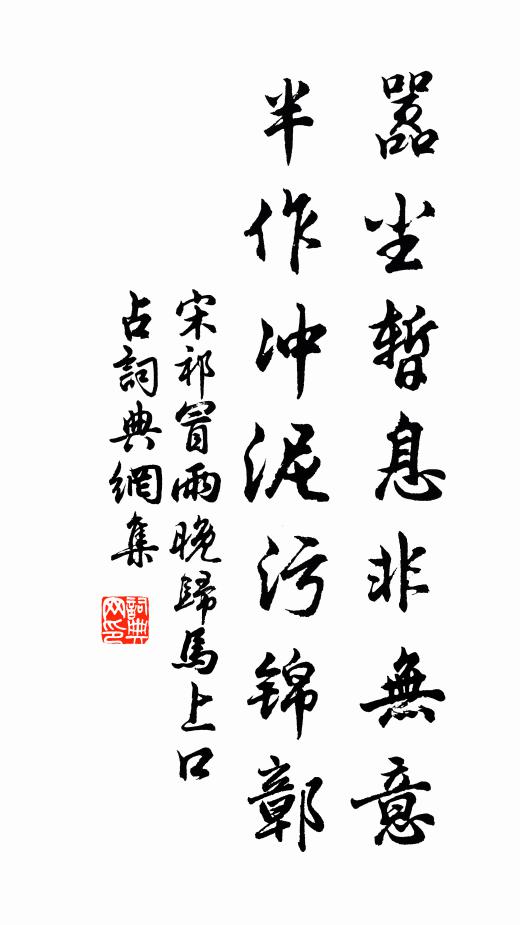 嚣尘暫息非無意
半作冲泥污锦鄣
宋祁冒雨晚歸馬上口
占詞典網集
詞典网印